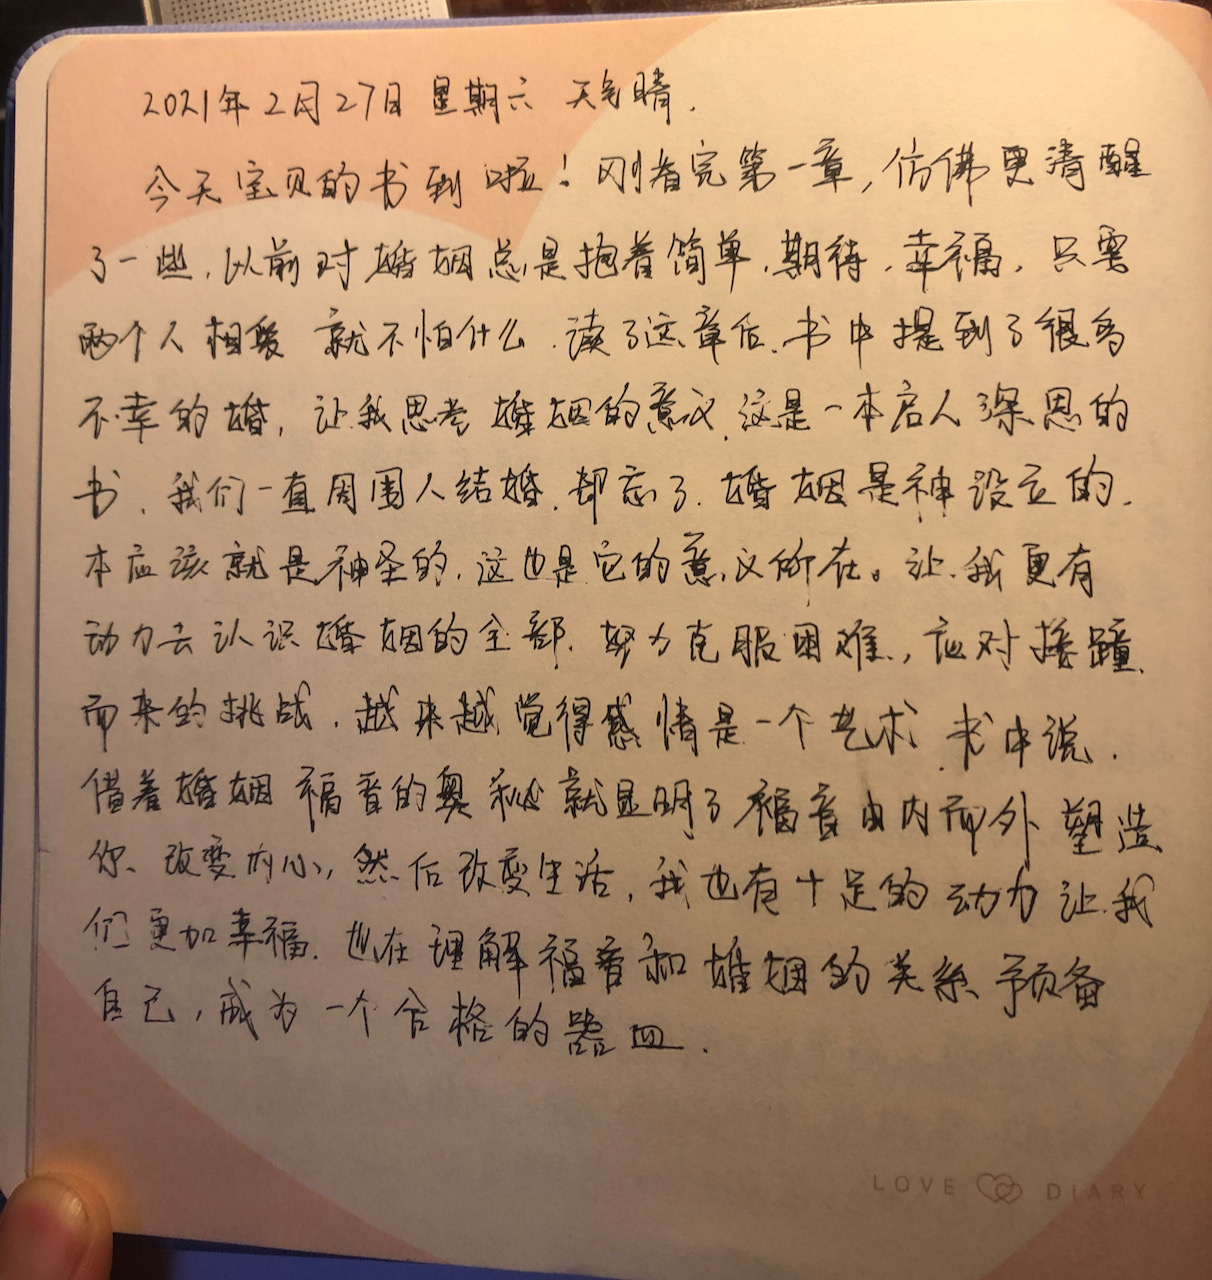 2021年2月27日 星期六 天气晴.
今天宝贝的书到啦！刚看完第一章，仿佛更清醒
了一些,以前对婚姻总是抱着简单,期待,幸福,只需
两个人相爱 就不怕什么.读了这章后.书中提到了很多
不幸的婚,让我思考婚姻的意义.这是一本启人深思的
书.我们一直周围人结婚.却忘了.婚姻是神设立的.
本应该就是神圣的.这也是它的意义所在。让我更有
动力去认识婚姻的全部.努力克服困难,应对接踵
而来的挑战.越来越觉得感情是一个艺术.书中说.
借着婚姻福音的奥秘就显明了福音由内而外塑造
你.改变内心,然后改变生活,我也有十足的动力让我
们更加幸福.也在理解福音和婚姻的关系.预备
自己,成为一个合格的器皿.
LOVE DIARY